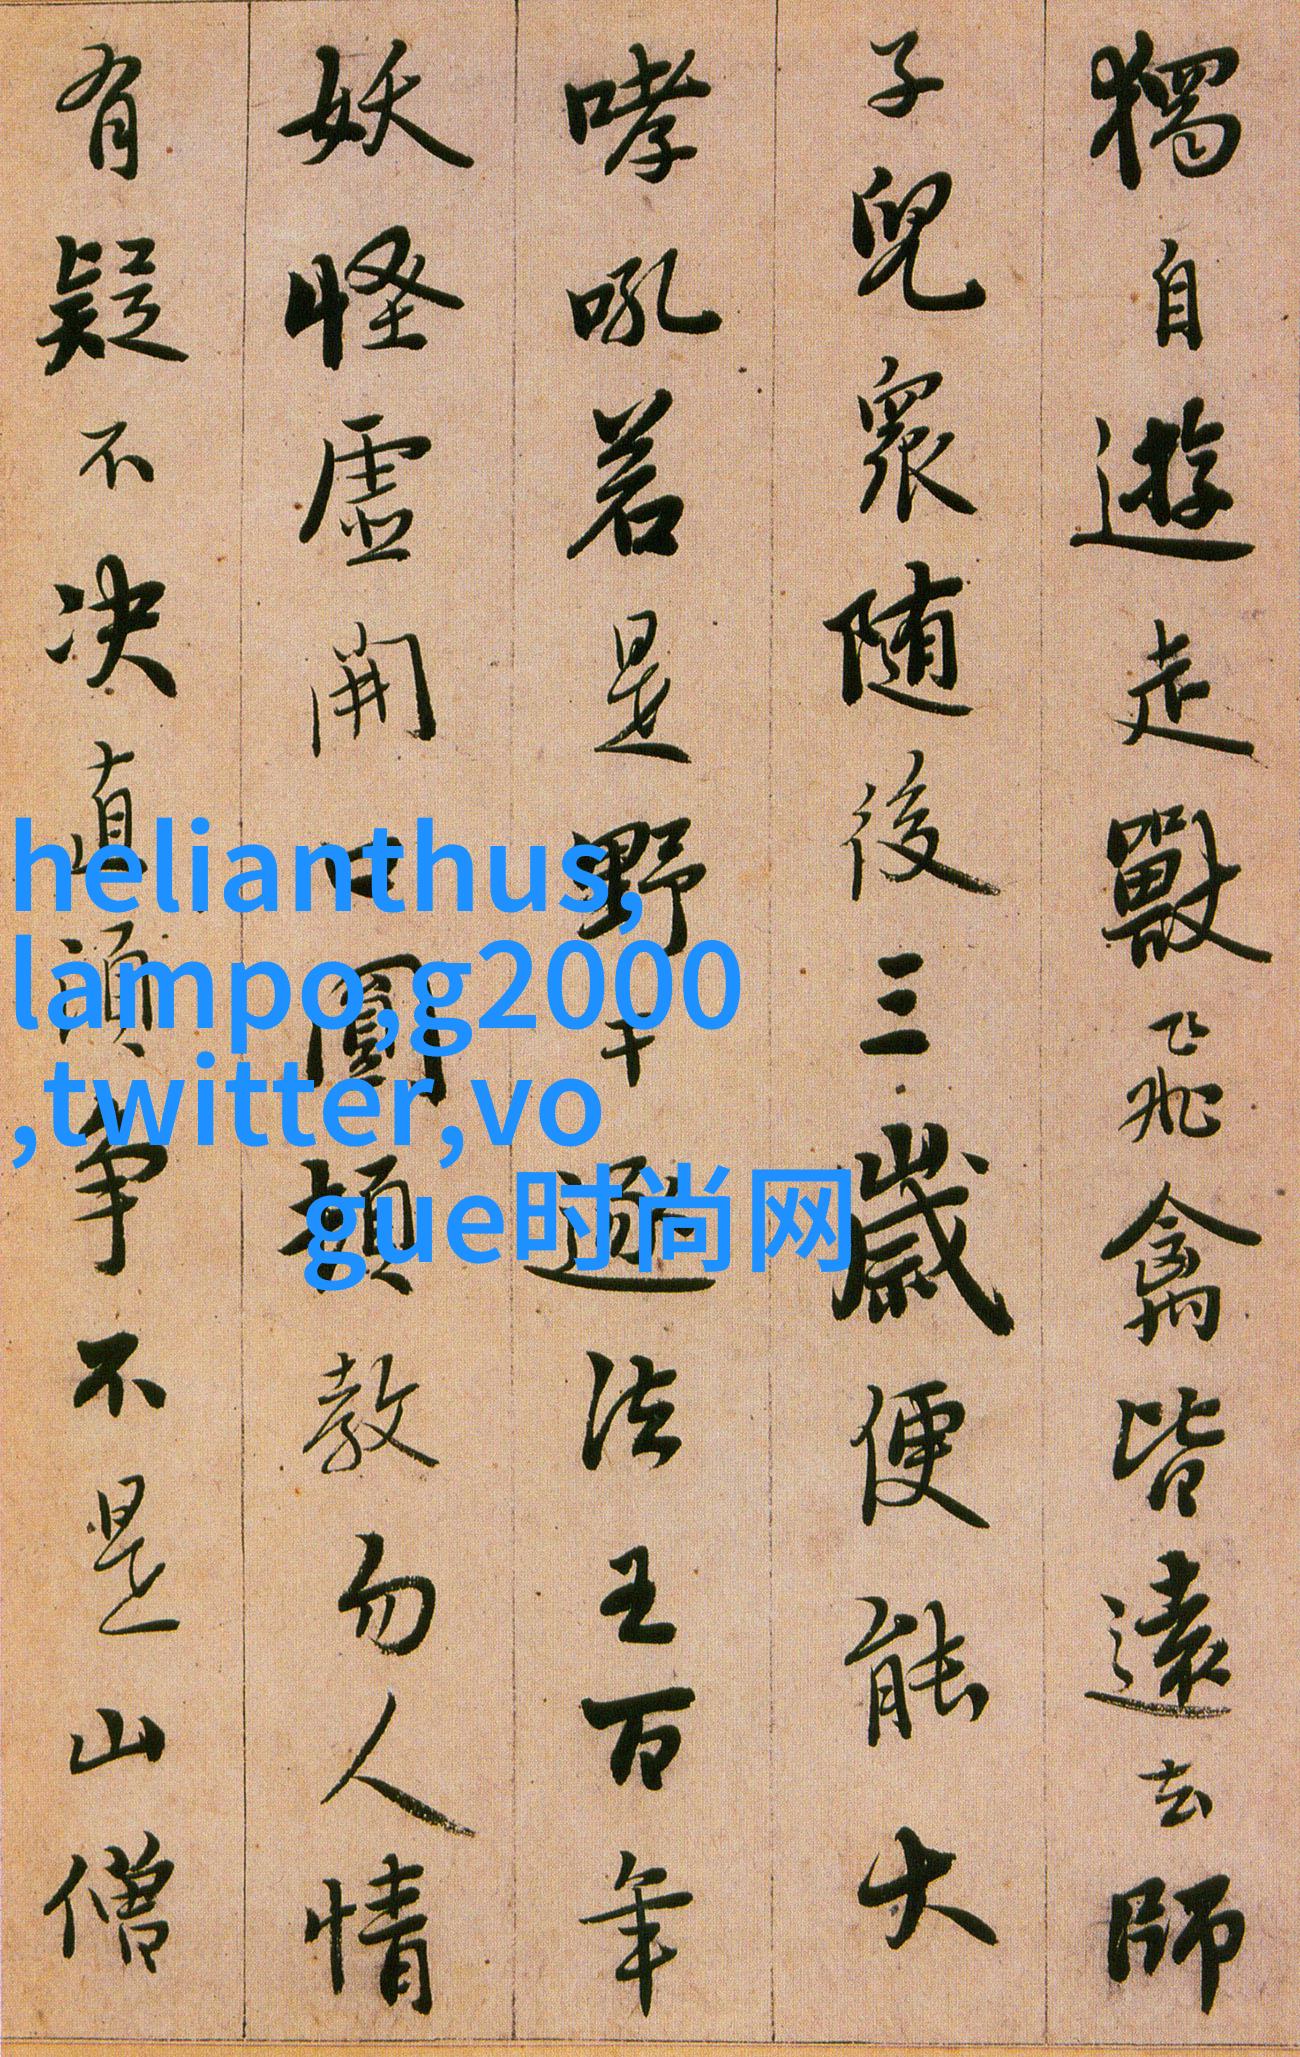 獨自遊走獸飛禽皆遠去師
子兒衆随後三歲便能大
哮吼若是野干逐法王百年
妖怪虚開口圓頓教勿人情
有疑不决直須争不是山僧
helianthus,
lampo,g2000
,twitter,vo
gue时尚网